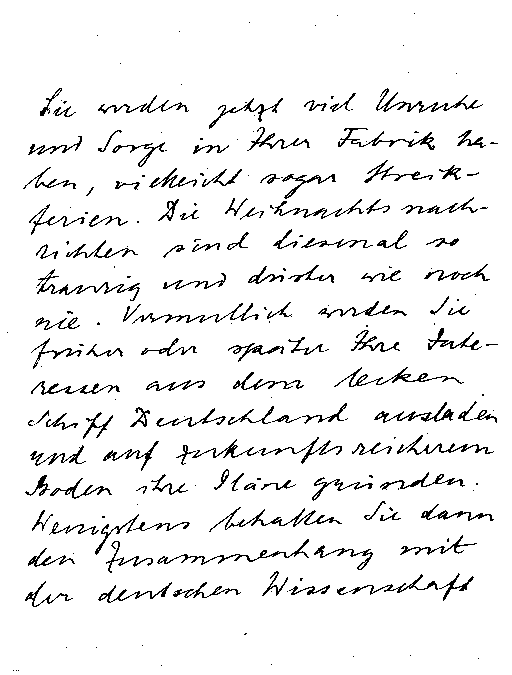 Sie werden jetzt viel Unruhe
und Sorge in Ihrer Fabrik ha-
ben, vielleicht sogar Streik-
ferien. Die Weihnachtsnach-
richten sind diesmal so
traurig und düster wie noch
nie. Vermutlich werden Sie
früher oder später Ihre Inte-
ressen aus dem lecken
Schiff Deutschland ausladen
und auf zukunftsreicherem
Boden ihre Pläne gründen.
Wenigstens behalten Sie dann
den Zusammenhang mit
der deutschen Wissenschaft